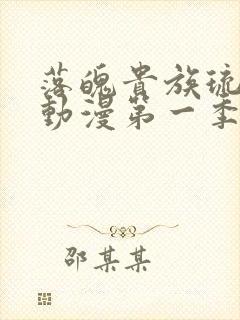 落魄貴族琉
動漫第一季
邵某某